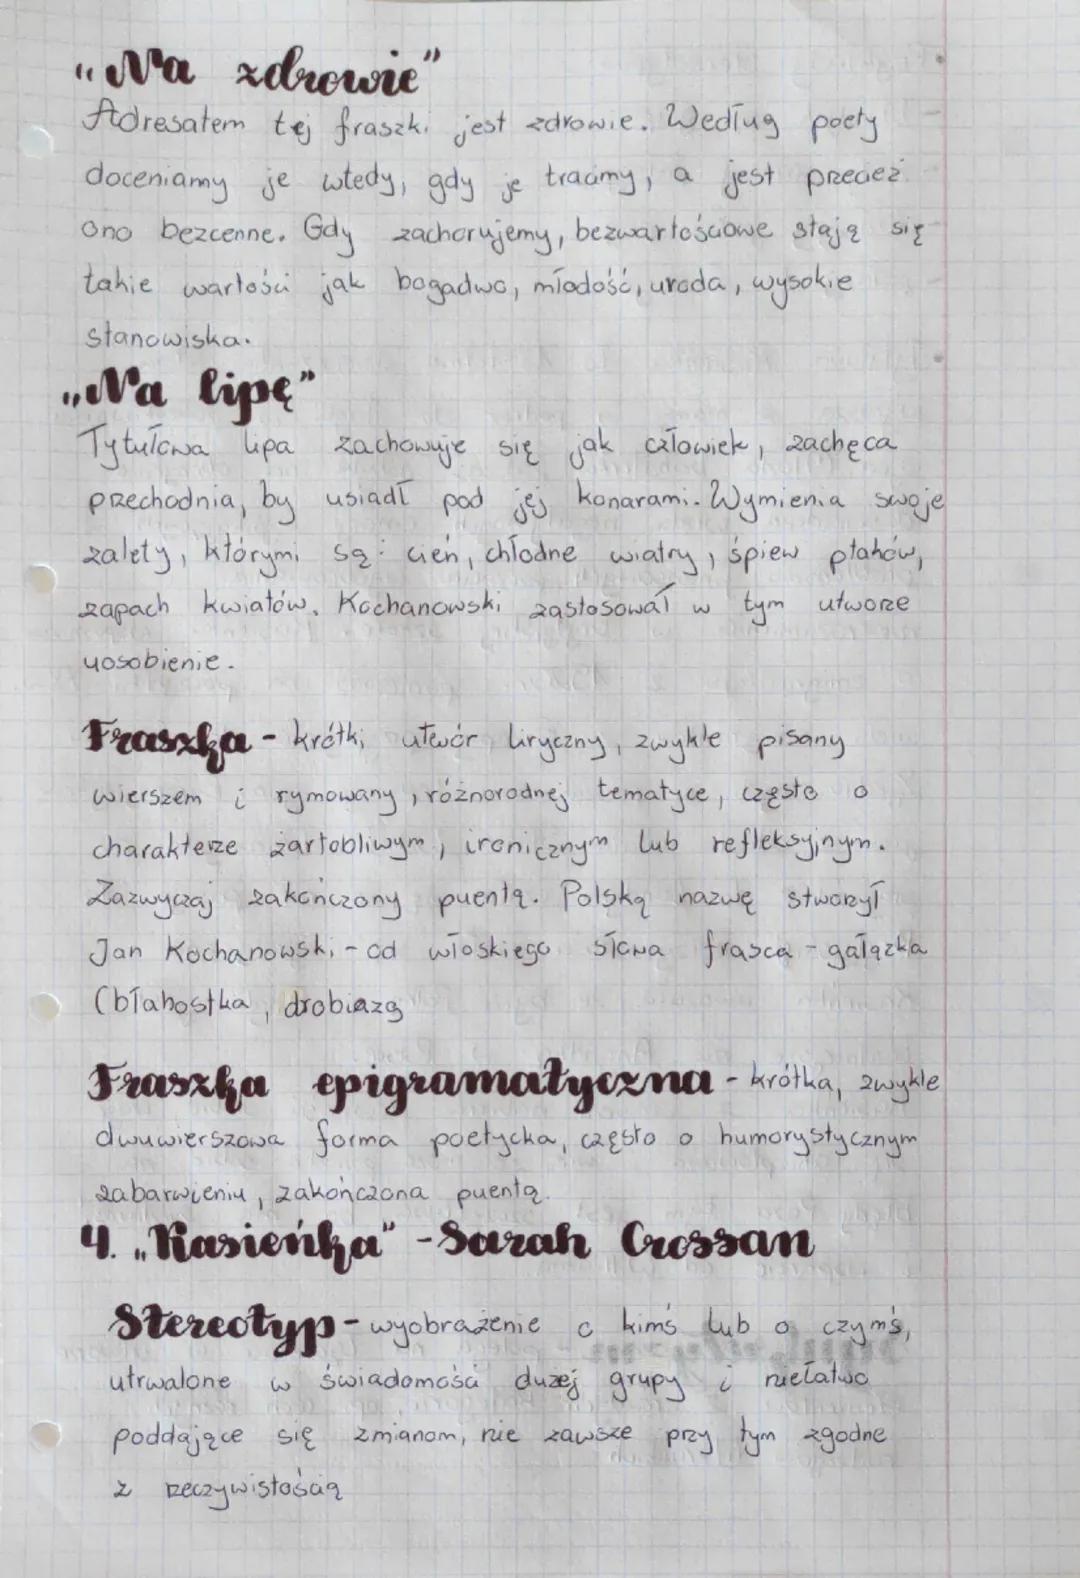 „Na zdrowie"
Adresatem tej fraszki jest zdrowie. Według poety
doceniamy je wtedy, gdy je tracimy, a jest przecież
ono bezcenne. Gdy zachorujemy, bezwartościowe stają się
takie wartości jak bogactwo, młodość, uroda, wysokie
stanowiska.
„Na lipę"
Tytułowa lipa zachowuje się jak człowiek, zachęca
przechodnia, by usiadł pod jej konarami. Wymienia swoje
zalety, którymi są: cień, chłodne wiatry, śpiew ptaków,
zapach kwiatów. Kochanowski zastosował w tym utworze
uosobienie.
Fraszka - krótki utwór liryczny, zwykle pisany
wierszem i rymowany, różnorodnej tematyce, często o
charakterze żartobliwym, ironicznym lub refleksyjnym.
Zazwyczaj zakończony puentą. Polską nazwę stworzył
Jan Kochanowski - od włoskiego słowa frasca - gałązka
(błahostka, drobiazg
Fraszka epigramatyczna - krótka, zwykle
dwuwierszowa forma poetycka, często o humorystycznym
zabarwieniu, zakończona puentą.
4. „Kasieńka" - Sarah Crossan
Stereotyp - wyobrażenie o kimś lub o czymś,
utrwalone w świadomości dużej grupy i niełatwo
poddające się zmianom, nie zawsze przy tym zgodne
z rzeczywistością